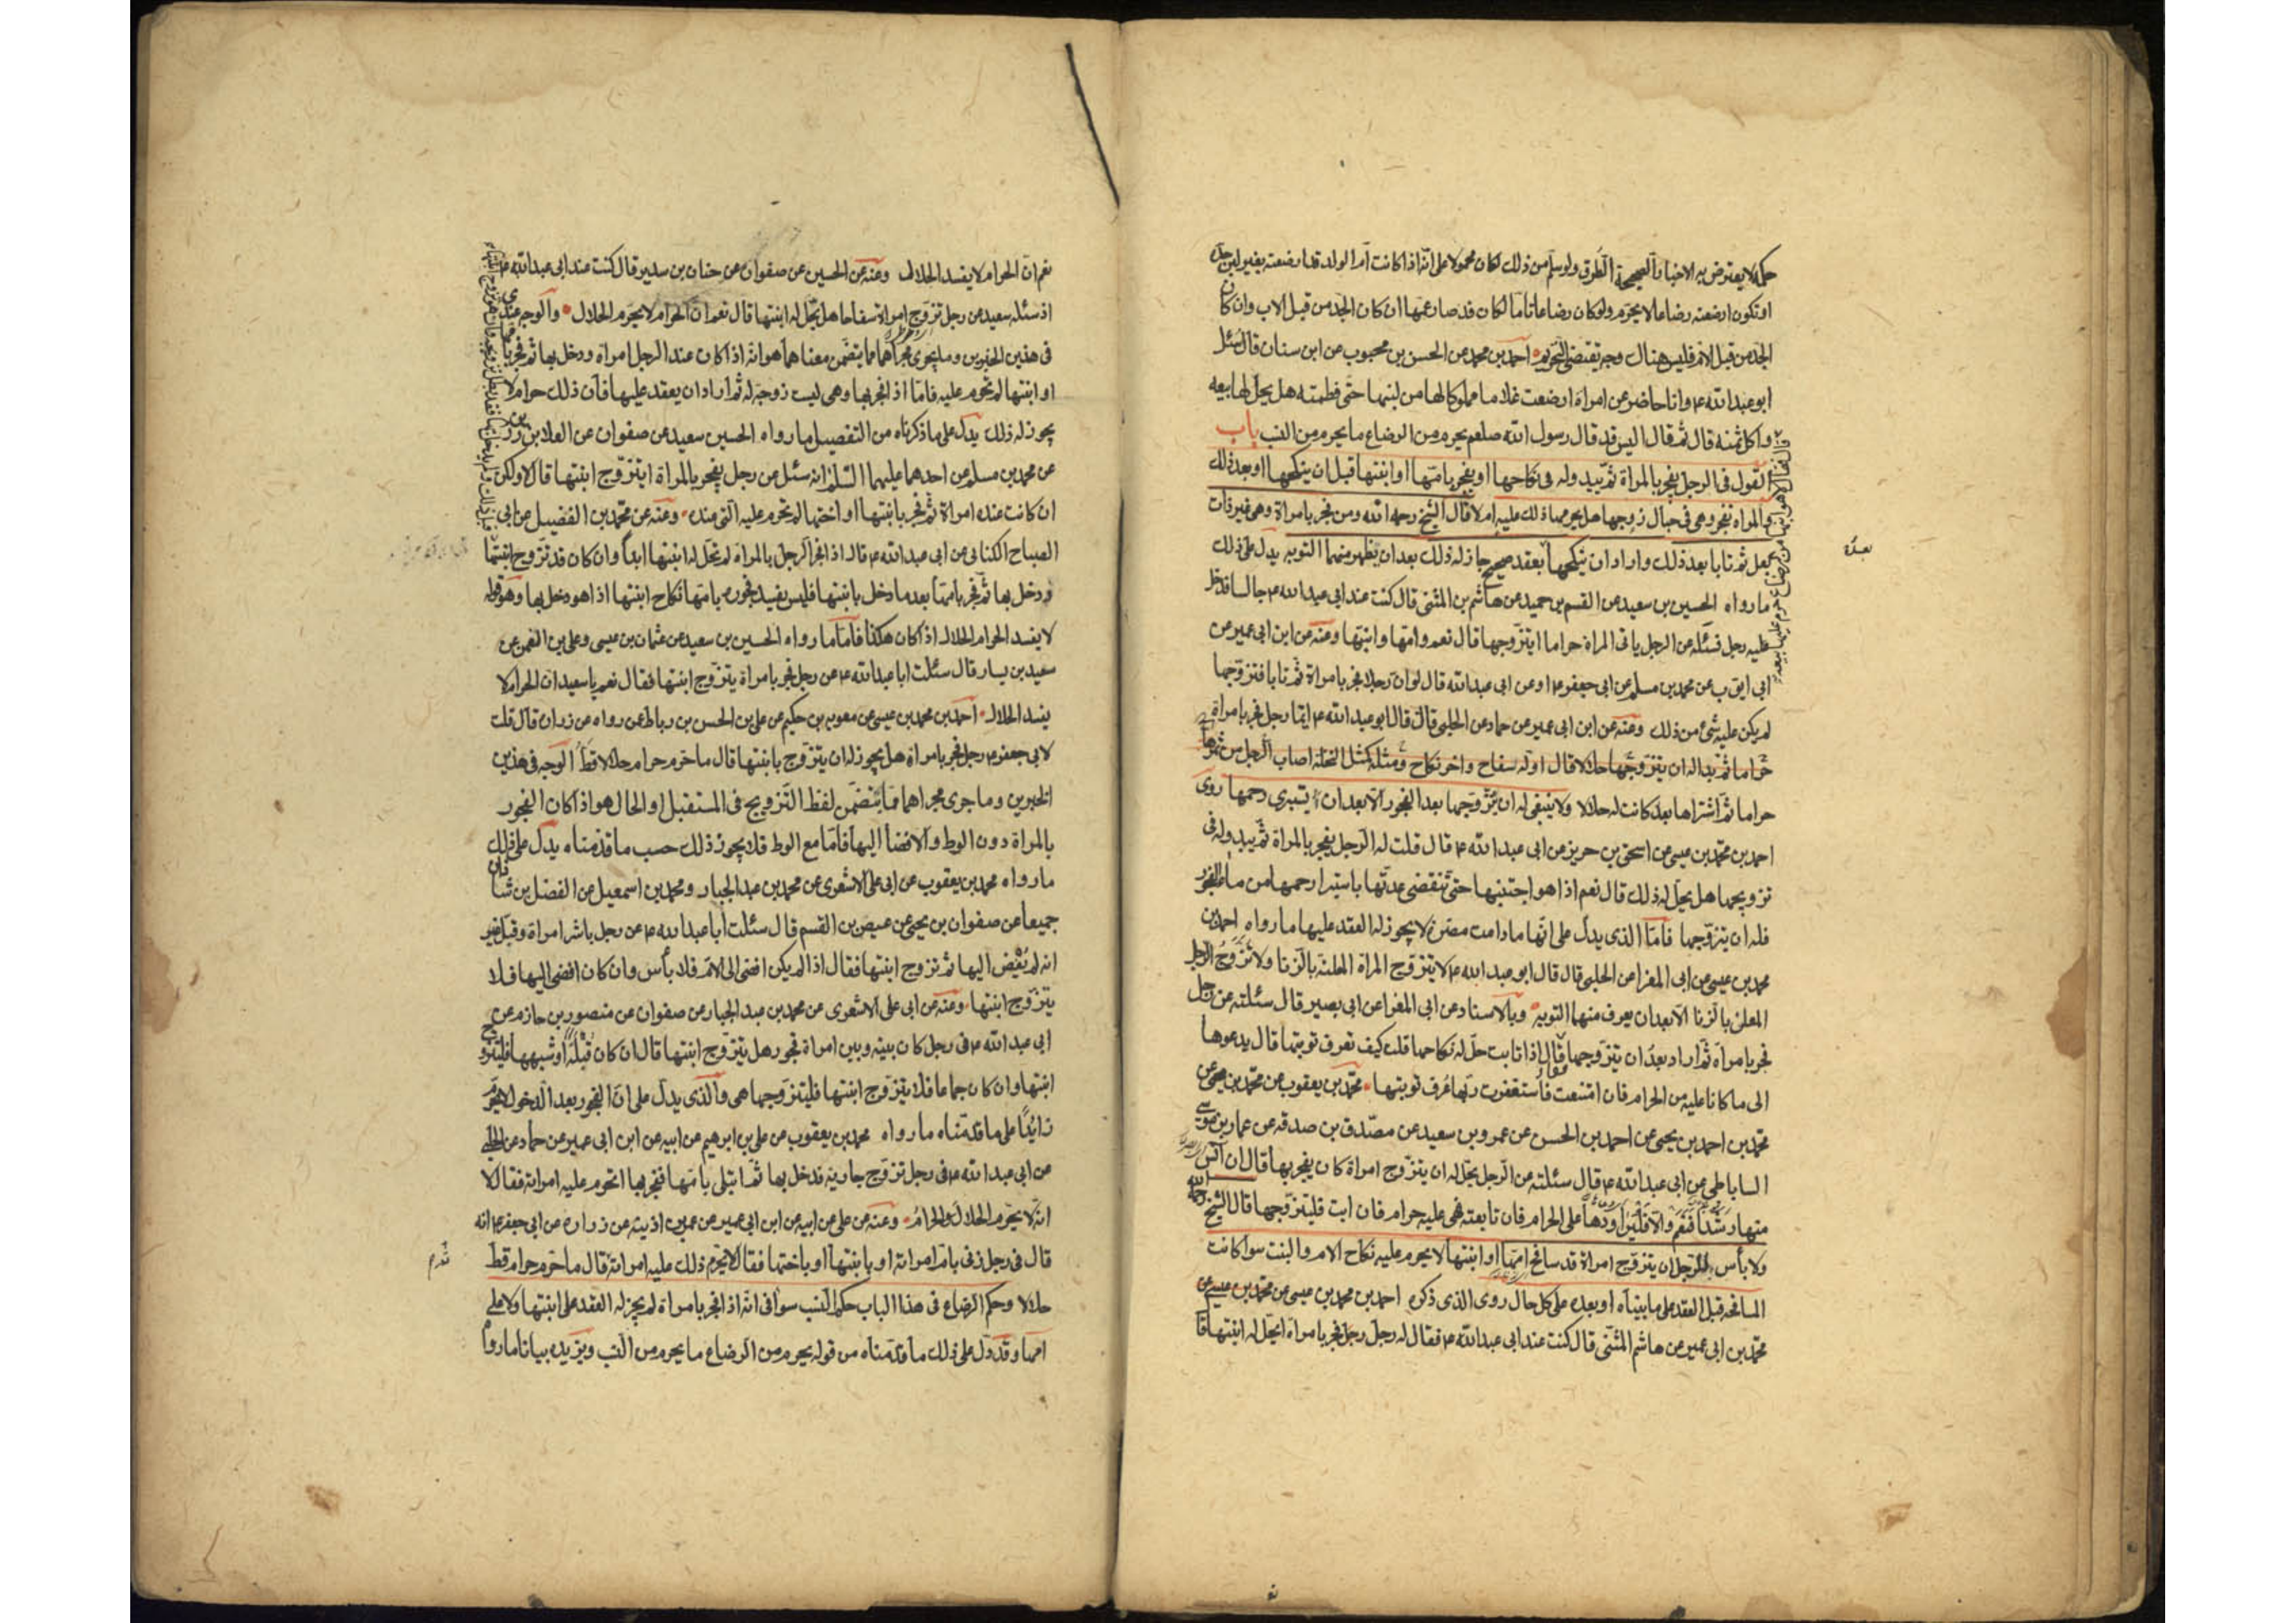 حكمه لا يعترض به الاخبار الصحيحة الطرق ولو سلم من ذلك لكان محمولا على انه اذا كانت ام الولد قد ارضعته بغير لبن جده
او تكون ارضعته رضاعا لا يحرم ولو كان رضاعا تاما لكان قد صار عمها ان كان الجد من قبل الاب وان كان
الجد من قبل الام فليس هناك وجه يقتضى التحريم احمد بن محمد عن الحسن بن محبوب عن ابن سنان قال سئل
ابو عبد الله ع وانا حاضر عن امراة ارضعت غلاما مملوكا لها من لبنها حتى فطمته هل يحل لها بيعه
واكل ثمنه قال ثم قال اليس قد قال رسول الله صلعم يحرم من الرضاع ما يحرم من النسب باب
القول فى الرجل يفجر بالمراة ثم يبدو له فى نكاحها او يفجر بامها او ابنتها قبل ان ينكحها او بعد ذلك
والمراه تفجر وهى فى حبال زوجها هل يحرمها ذلك عليه ام لا قال الشيخ رحمه الله ومن فجر بامراة وهى غير ذات
بعل ثم تابا بعد ذلك واراد ان ينكحها بعقد صحيح جاز له ذلك بعد ان يظهر منهما التوبه يدل على ذلك
ما رواه الحسين بن سعيد عن القسم بن حميد عن هاشم بن المثنى قال كنت عند ابى عبد الله ع جالسا فدخل
عليه رجل فسئله عن الرجل ياتى المراة حراما ايتزوجها قال نعم وامها وابنتها وعنه عن ابن ابى عمير عن
ابى ايوب عن محمد بن مسلم عن ابى جعفر ع او عن ابى عبد الله قال لو ان رجلا فجر بامراة ثم تابا فتزوجها
لم يكن عليه شئ من ذلك وعنه عن ابن ابى عمير عن حماد عن الحلبى قال قال ابو عبد الله ع ايما رجل فجر بامراة
حراما ثم بدا له ان يتزوجها حلالا قال اوله سفاح واخره نكاح ومثله كمثل النخلة اصاب الرجل من ثمرها
حراما ثم اشتراها بعد كانت له حلالا ولا ينبغى له ان يتزوجها بعد الفجور الا بعد ان يستبرى رحمها روى
احمد بن محمد بن عيسى عن اسحق بن حريز عن ابى عبد الله ع قال قلت له الرجل يفجر بالمراة ثم يبدو له فى
تزويجها هل يحل له ذلك قال نعم اذا هو اجتنبها حتى تنقضى عدتها باستبرا رحمها من ماء الفجور
فله ان يتزوجها فاما الذى يدل على انها ما دامت مصرة لا يجوز له العقد عليها ما رواه احمد بن
محمد بن عيسى عن ابى المغرا عن الحلبى قال قال ابو عبد الله ع لا يتزوج المراة المعلنة بالزنا ولا تزوج الرجل
المعلن بالزنا الا بعد ان يعرف منهما التوبه وبالاسناد عن ابى المغرا عن ابى بصير قال سئلته عن رجل
فجر بامراة ثم اراد بعد ان يتزوجها فقال اذا تابت حل له نكاحها قلت كيف تعرف توبتها قال يدعوها
الى ما كانا عليه من الحرام فان امتنعت فاستغفرت ربها عرف توبتها محمد بن يعقوب عن محمد بن يحيى عن
محمد بن احمد بن يحيى عن احمد بن الحسن عن عمرو بن سعيد عن مصدق بن صدقه عن عمار بن موسى
الساباطى عن ابى عبد الله ع قال سئلته عن الرجل يحل له ان يتزوج امراة كان يفجر بها قال ان آنس
منها رشدا فنعم والا فليراودها على الحرام فان تابعته فهى عليه حرام فان ابت فليتزوجها قال الشيخ رحمه الله
ولا بأس للرجل ان يتزوج امراة قد سافح امها او ابنتها لا يحرم عليه نكاح الام والبنت سوا كانت
المسافحه قبل العقد على ما بيناه او بعده على كل حال روى الذى ذكره احمد بن محمد بن عيسى عن محمد بن عيسى عن
محمد بن ابى عمير عن هاشم المثنى قال كنت عند ابى عبد الله ع فقال له رجل رجل فجر بامراة ايحل له ابنتها قا
بعده
نعم ان الحرام لا يفسد الحلال وعنه عن الحسين عن صفوان عن حنان بن سدير قال كنت عند ابى عبد الله ع
اذ سئله سعيد عن رجل تزوج امراة سفاحا هل يحل له ابنتها قال نعم ان الحرام لا يحرم الحلال والوجه عندى
فى هذين الخبرين وما يجرى مجراهما مما يتضمن معناهما هو انه اذا كان عند الرجل امراة ودخل بها ثم فجر بامها
او ابنتها لم تحرم عليه فاما اذا فجر بها وهى ليست زوجة له ثم اراد ان يعقد عليها فان ذلك حرام لا
يجوز له ذلك يدل على ما ذكرناه من التفصيل ما رواه الحسين سعيد عن صفوان عن العلا بن رزين
عن محمد بن مسلم عن احدهما عليهما السلم انه سئل عن رجل يفجر بالمراة ايتزوج ابنتها قال لا ولكن
ان كانت عنده امراة ثم فجر بابنتها او اختها لم تحرم عليه التى عنده وعنه عن محمد بن الفضيل عن ابى
الصباح الكنانى عن ابى عبد الله ع قال اذا فجر الرجل بالمراة لم تحل له ابنتها ابدا وان كان قد تزوج ابنتها
ودخل بها ثم فجر بامها بعد ما دخل بابنتها فليس يفسد فجوره بامها نكاح ابنتها اذا هو دخل بها وهو قوله
لا يفسد الحرام الحلال اذا كان هكذا فاما ما رواه الحسين بن سعيد عن عثمان بن عيسى وعلى بن النعمن عن
سعيد بن يسار قال سئلت ابا عبد الله ع عن رجل فجر بامراة يتزوج ابنتها فقال نعم يا سعيد ان الحرام لا
يفسد الحلال احمد بن محمد بن عيسى عن معويه بن حكيم عن على بن الحسن بن رباط عمن رواه عن زران قال قلت
لابى جعفر ع رجل فجر بامراة هل يجوز له ان يتزوج بابنتها قال ما حرم حرام حلالا قط الوجه فى هذين
الخبرين وما جرى مجراهما مما يتضمن لفظ التزويج فى المستقبل او الحال هو اذا كان الفجور
بالمراة دون الوطى والافضا اليها فاما مع الوطى فلا يجوز ذلك حسب ما قدمناه يدل على ذلك
ما رواه محمد بن يعقوب عن ابى على الاشعرى عن محمد بن عبد الجبار ومحمد بن اسمعيل عن الفضل بن شاذان
جميعا عن صفوان بن يحيى عن عيص بن القسم قال سئلت ابا عبد الله ع عن رجل باشر امراة وقبل غير
انه لم يفض اليها ثم تزوج ابنتها فقال اذا لم يكن افضى الى الام فلا بأس وان كان افضى اليها فلا
يتزوج ابنتها وعنه عن ابى على الاشعرى عن محمد بن عبد الجبار عن صفوان عن منصور بن حازم عن
ابى عبد الله ع فى رجل كان بينه وبين امراة فجور هل يتزوج ابنتها قال ان كان قبلة او شبهها فليتزوج
ابنتها وان كان جماعا فلا يتزوج ابنتها فليتزوجها هى والذى يدل على ان الفجور بعد الدخول لا يحرم
زائدا على ما قدمناه ما رواه محمد بن يعقوب عن على بن ابرهيم عن ابيه عن ابن ابى عمير عن حماد عن الحلبى
عن ابى عبد الله ع فى رجل تزوج جارية فدخل بها ثم ابتلى بامها ففجر بها اتحرم عليه امراته فقال لا
انه لا يحرم الحلال الحرام وعنه عن على عن ابيه عن ابن ابى عمير عن عمر بن اذينه عن زراره عن ابى جعفر ع انه
قال فى رجل زنى بام امراته او بابنتها او باختها فقال لا يحرم ذلك عليه امراته قال ما حرم حرام قط
حلالا وحكم الرضاع فى هذا الباب حكم النسب سوا فى انه اذا فجر بامراة لم يجز له العقد على ابنتها ولا على
امها وقد دل على ذلك ما قدمناه من قوله يحرم من الرضاع ما يحرم من النسب ويزيده بيانا ما رواه